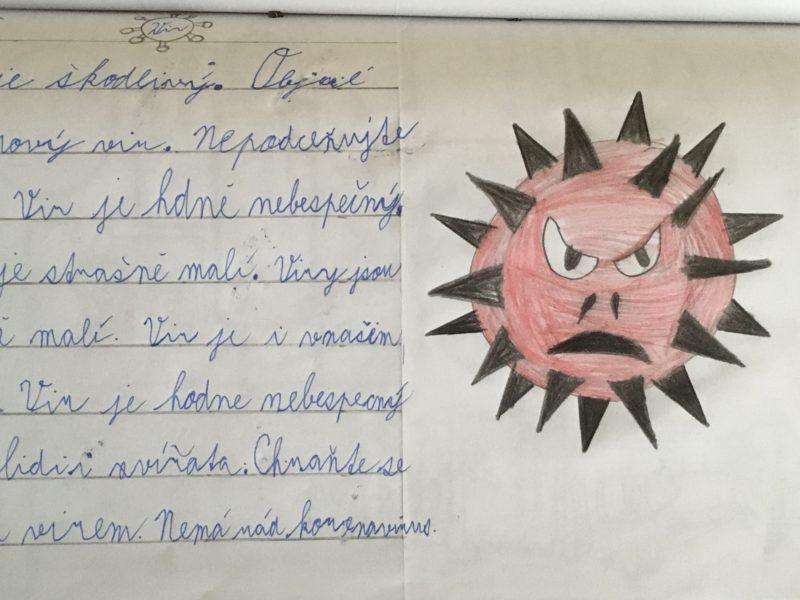 Vir
je škodlivý. Objevil
nový vir. Nepodceňujte
Vir je hdně nebespečný.
je strašně malí. Viry jsou
malí. Vir je i vnašem
Vir je hodne nebespečný
lidi i zvířata. Chraňte se
virem. Nemá rád koronavirus.